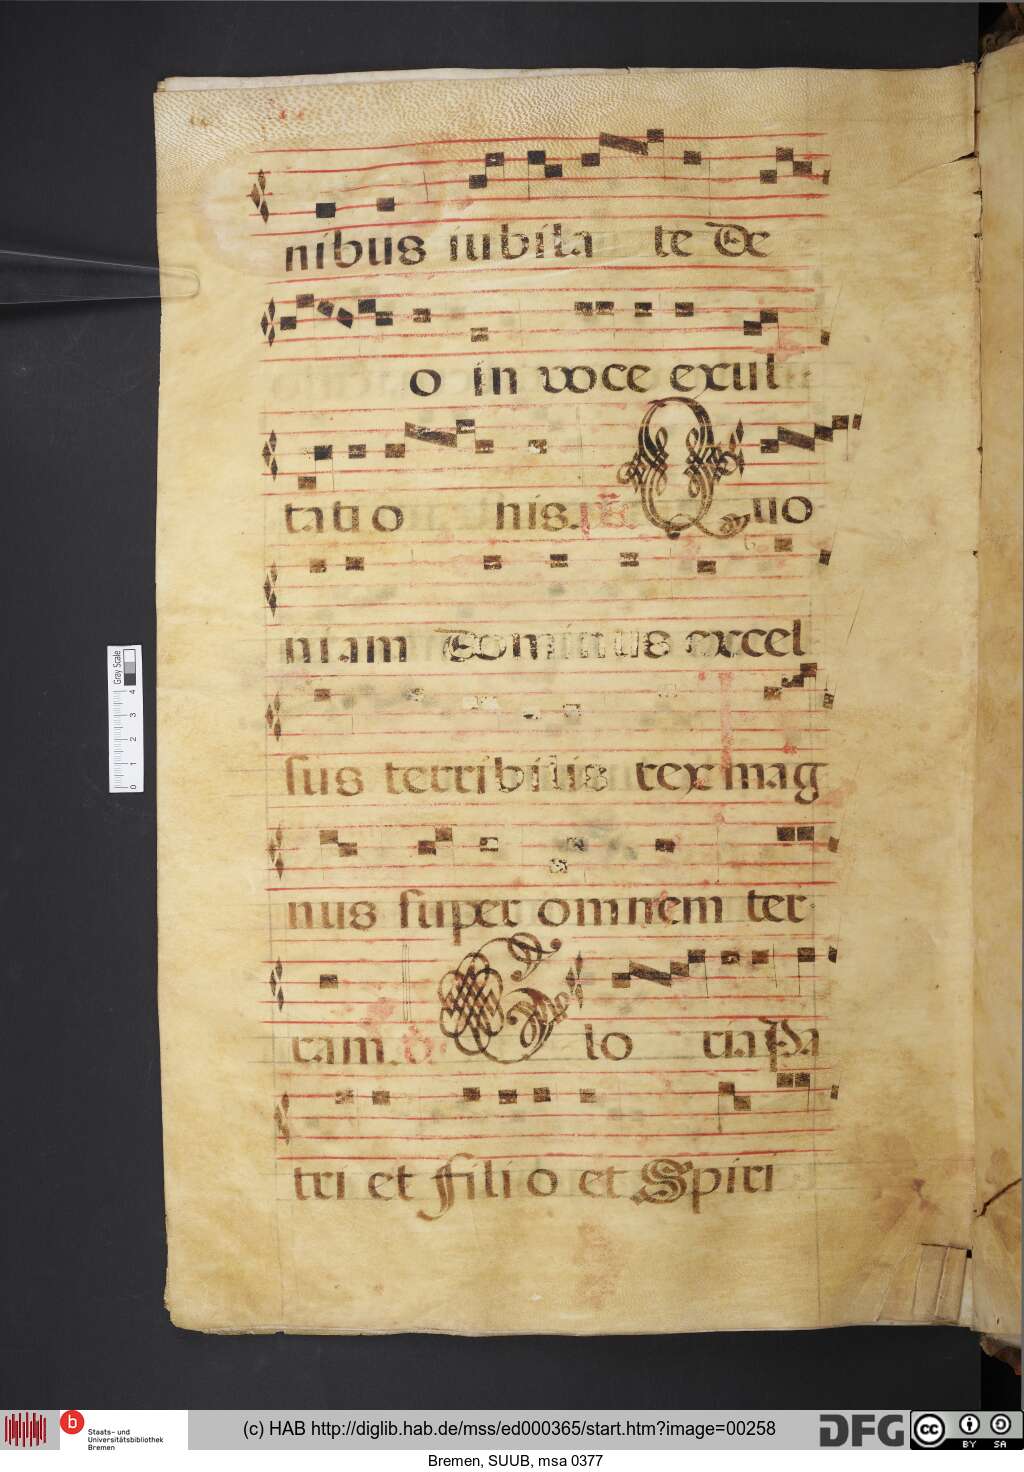 nibus iubila te De
o in voce exul
tatio nis. Ps. Quo
niam Dominus excel
sus terribilis rex mag
nus super omnem ter
ram. V. Glo ria Pa
tri et Filio et Spiri
Gray Scale
4
3
2
1
0
b
Staats- und
Universitätsbibliothek
Bremen
(c) HAB http://diglib.hab.de/mss/ed000365/start.htm?image=00258
DFG
cc
BY SA
Bremen, SUUB, msa 0377